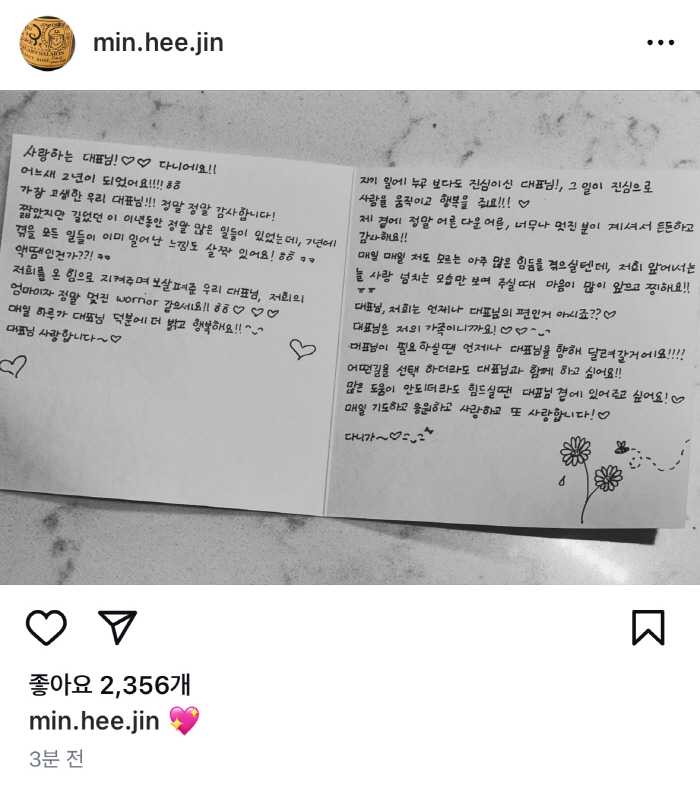 min.hee.jin
사랑하는 대표님!♡♡ 다니에요!!
어느새 2년이 되었어요!!!! ㅎㅎ
가장 고생한 우리 대표님!!! 정말 정말 감사합니다!
짧았지만 길었던 이 이년동안 정말 많은 일들이 있었는데, 7년에
겪을 모든 일들이 이미 일어난 느낌도 살짝 있어요! ㅎㅎ
액땜인건가??!
저희를 온 힘으로 지켜주며 보살펴준 우리 대표님, 저희의
엄마이자 정말 멋진 worrior 같으세요!! ㅎㅎ ♡ ♡ ♡
매일 하루가 대표님 덕분에 더 밝고 행복해요!! ^-^
대표님 사랑합니다~♡
자기 일에 누구 보다도 진심이신 대표님!, 그 일이 진심으로
사람을 움직이고 행복을 줘요!!! ♡
제 곁에 정말 어른 다운 어른, 너무나 멋진 분이 계셔서 든든하고
감사해요!!
매일 매일 저도 모르는 아주 많은 힘듦을 겪으실텐데, 저희 앞에서는
늘 사랑 넘치는 모습만 보여 주실 때 마음이 많이 앞으고 찡해요!!
ㅠㅠ
대표님, 저희는 언제나 대표님의 편인거 아시죠??♡
대표님은 저의 가족이니까요!♡♡^-^
대표님이 필요하실땐 언제나 대표님을 향해 달려갈거에요!!!!
어떤길을 선택 하더라도 대표님과 함께 하고 싶어요!!
많은 도움이 안되더라도 힘드실땐 대표님 곁에 있어주고 싶어요!♡
매일 기도하고 응원하고 사랑하고 또 사랑합니다!♡
다니가~♡
좋아요 2,356개
min.hee.jin 💖
3분 전